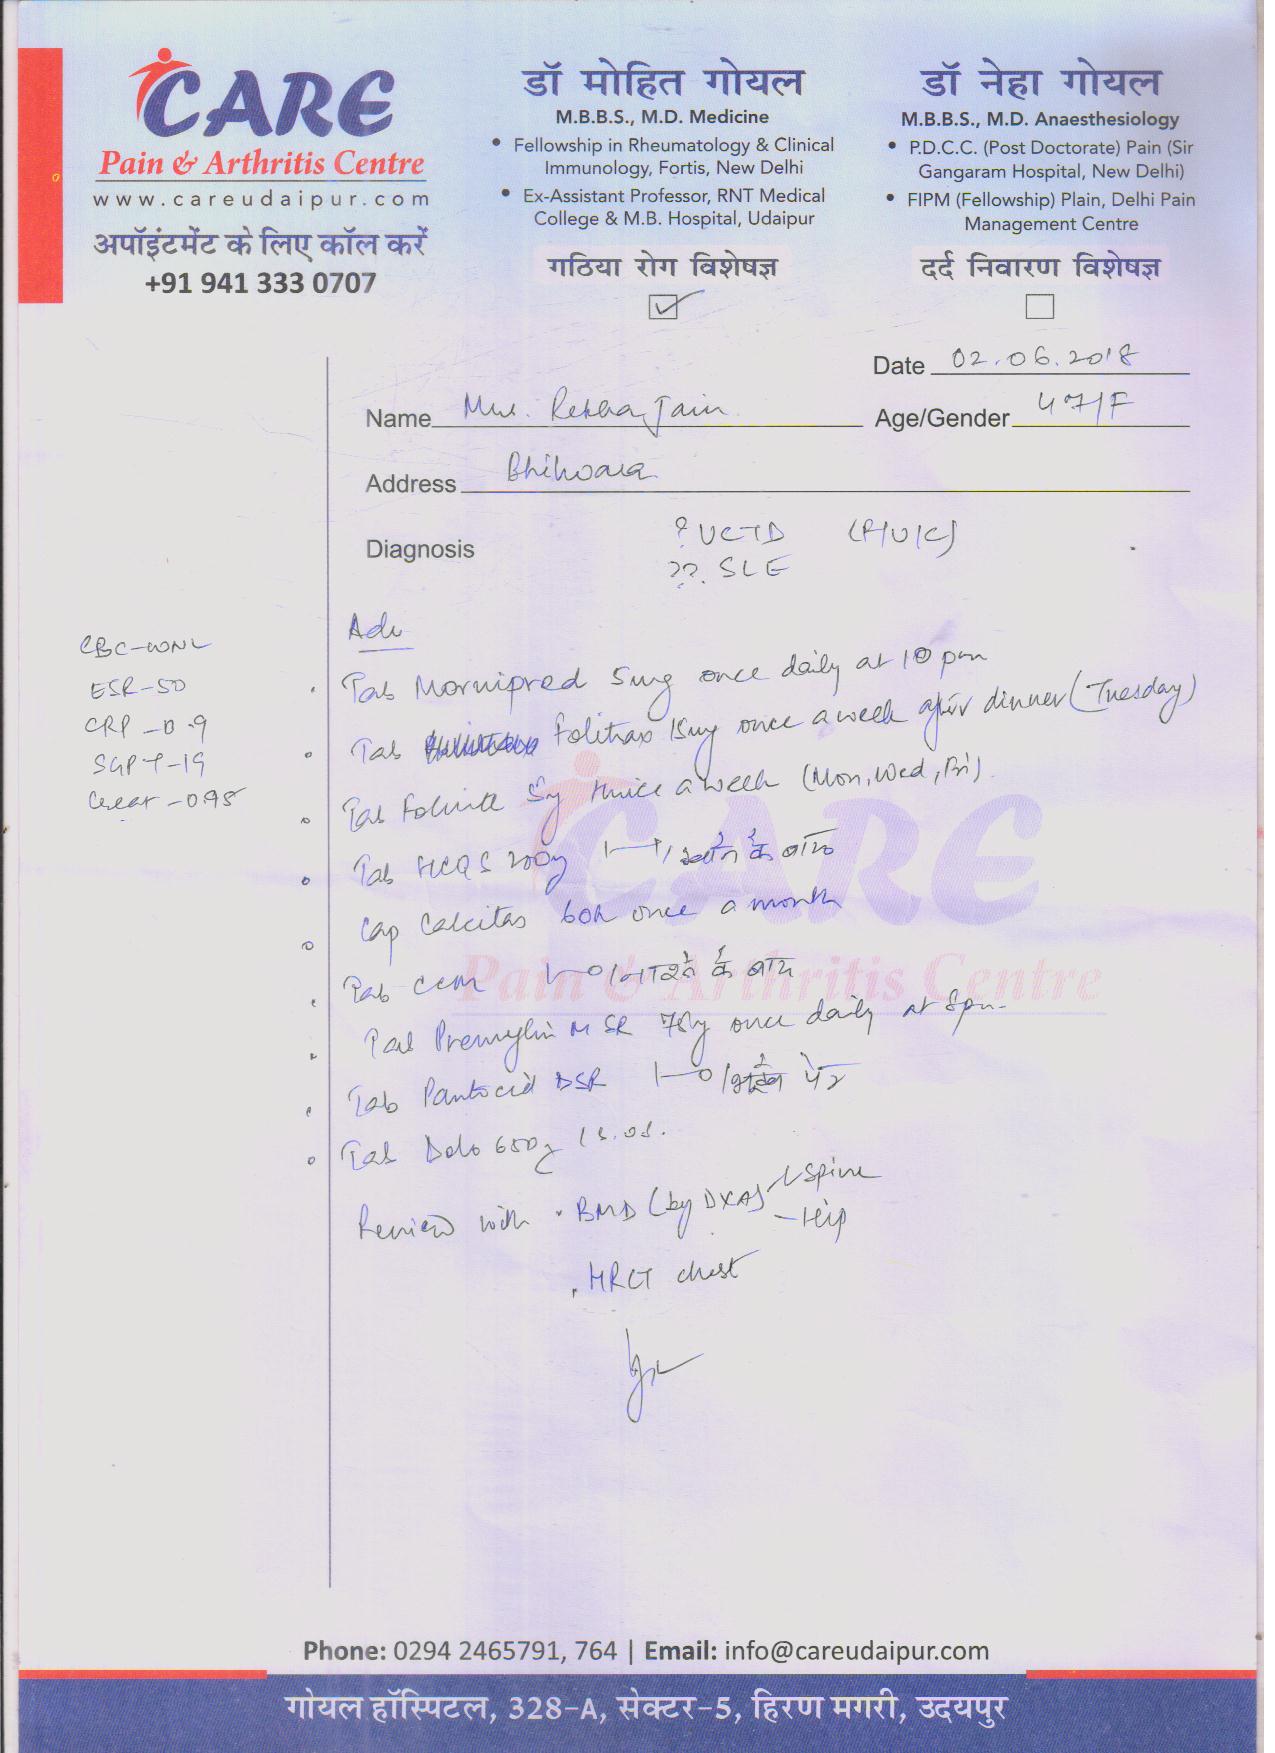 CARE
Pain & Arthritis Centre
www.careudaipur.com
अपॉइंटमेंट के लिए कॉल करें
+91 941 333 0707
डॉ मोहित गोयल
M.B.B.S., M.D. Medicine
• Fellowship in Rheumatology & Clinical
Immunology, Fortis, New Delhi
• Ex-Assistant Professor, RNT Medical
College & M.B. Hospital, Udaipur
गठिया रोग विशेषज्ञ
डॉ नेहा गोयल
M.B.B.S., M.D. Anaesthesiology
• P.D.C.C. (Post Doctorate) Pain (Sir
Gangaram Hospital, New Delhi)
• FIPM (Fellowship) Plain, Delhi Pain
Management Centre
दर्द निवारण विशेषज्ञ
Date 02.06.2018
Name Mrs. Rekha Jain
Age/Gender 47/F
Address Bhilwara
Diagnosis ? UCTD (P/U/C)
??. SLE
CBC-WNL
ESR-50
CRP-0.9
SGPT-19
Creat-0.95
Adv
Tab Mornipred 5mg once daily at 10 pm
Tab Folitrax 15mg once a week after dinner (Tuesday)
Tab Folvite 5mg thrice a week (Mon, Wed, Fri).
Tab HCQS 200mg 1-1, खाने के बाद
Cap Calcitas 60k once a month
Tab CCM 1-0 नाश्ते के बाद
Tab SR 75mg once daily at 8pm.
Tab Pantocid DSR 1-0 खाली पेट
Tab Dolo 650mg S.O.S.
Review with • BMD (by DXA) - Spine
- Hip
• HRCT chest
CARE
Pain & Arthritis Centre
Phone: 0294 2465791, 764 | Email: info@careudaipur.com
गोयल हॉस्पिटल, 328-A, सेक्टर-5, हिरण मगरी, उदयपुर